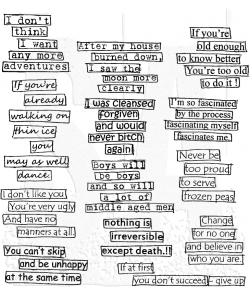 I don't
think
I want
any more
adventures
If you're
already
walking on
thin ice
you
may as well
dance.
I don't like you
You're very ugly
And have no
manners at all.
You can't skip
and be unhappy
at the same time
After my house
burned down,
I saw the
moon more
clearly
I was Cleansed
Forgiven
and would
never bitch
again!
Boys will
be boys
and so will
a lot of
middle aged men
nothing is
irreversible
except death.!!
If at first
you don't succeed - give up
If you're
old enough
to know better
You're too old
to do it !
I'm so fascinated
by the process,
fascinating myself
fascinates me.
Never be
too proud
to serve
frozen peas
Change
for no one
and believe in
who you are.